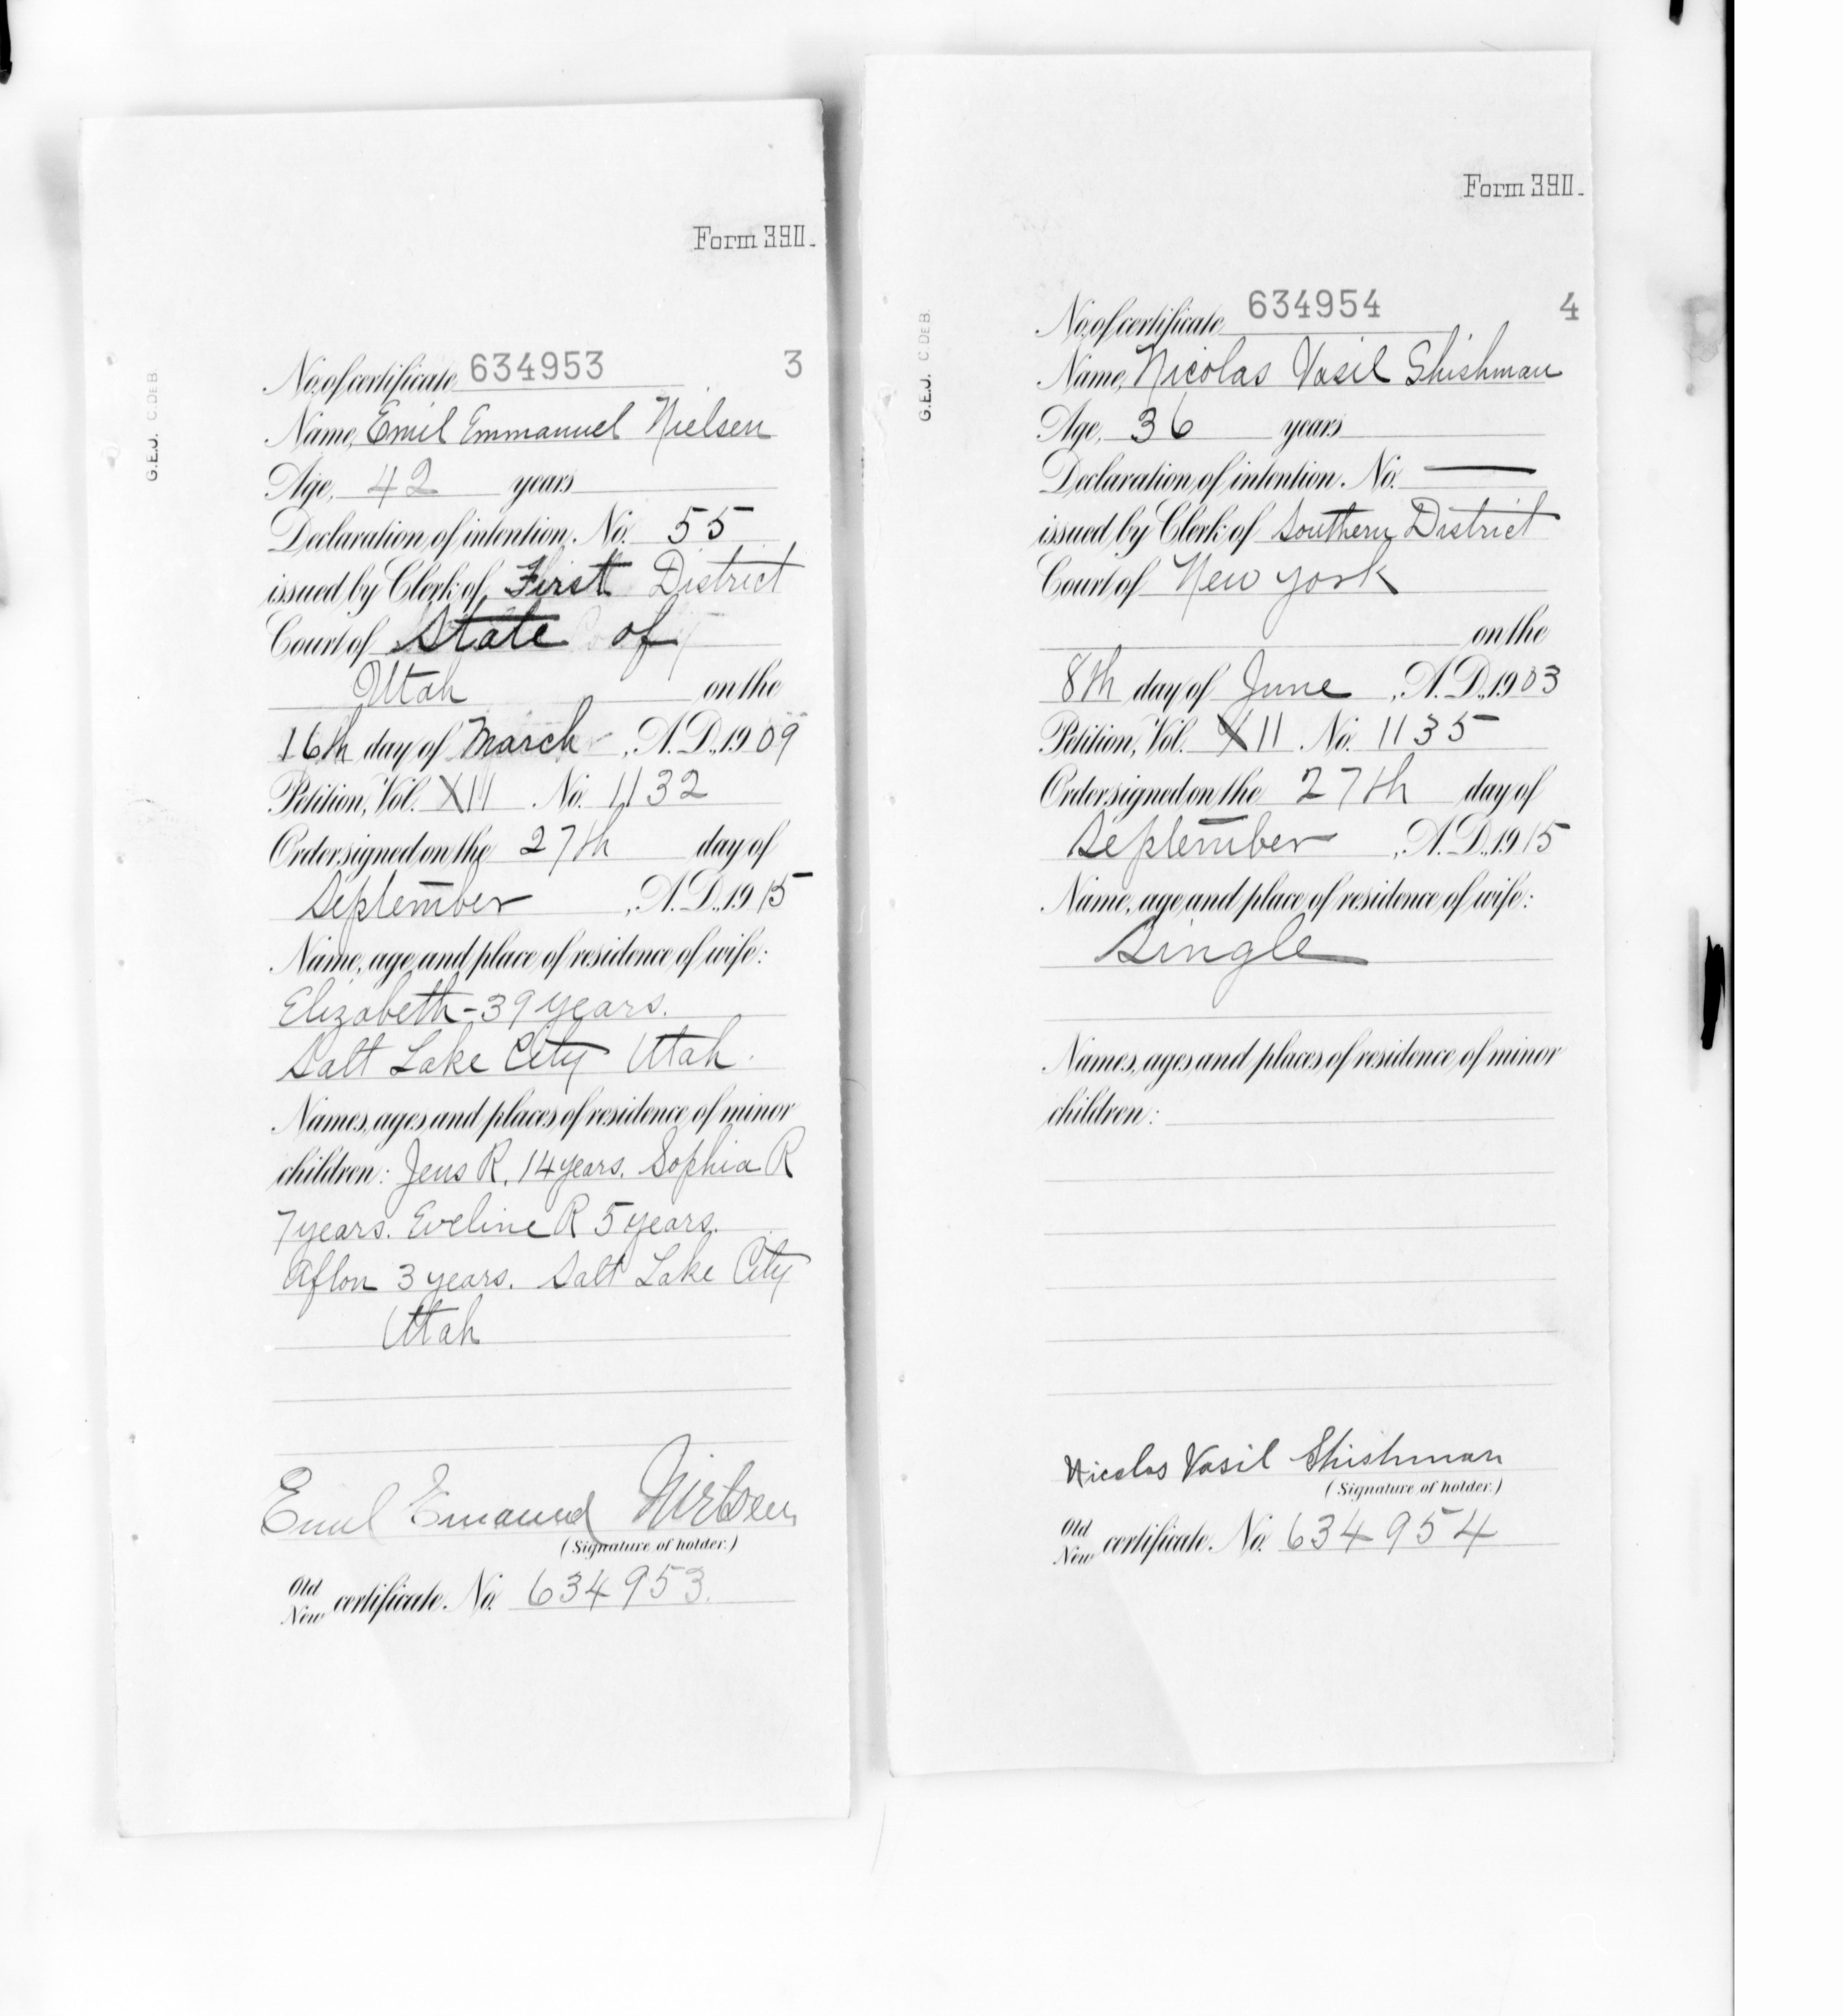 Form 390.
No. of certificate 634953 3
Name, Emil Emmanuel Nielsen
Age, 42 years
Declaration of intention. No. 55
issued by Clerk of First District
Court of State of
Utah on the
16th day of March, A. D., 1909
Petition, Vol. XII No. 1132
Order signed on the 27th day of
September, A. D., 1915
Name, age and place of residence of wife:
Elizabeth - 39 years.
Salt Lake City Utah.
Names, ages and places of residence of minor
children: Jens R. 14 years. Sophia R
7 years. Eveline R 5 years.
Aflon 3 years. Salt Lake City
Utah
Emil Emanuel Nielsen
(Signature of holder.)
Old
New certificate. No. 634953.
G.E.J. C DEB
Form 390.
No. of certificate 634954 4
Name, Nicolas Vasil Shishman
Age, 36 years
Declaration of intention. No. —
issued by Clerk of Southern District
Court of New York
on the
8th day of June, A. D., 1903
Petition, Vol. XII. No. 1135
Order signed on the 27th day of
September, A. D., 1915
Name, age and place of residence of wife:
Single
Names, ages and places of residence of minor
children:
Nicolas Vasil Shishman
(Signature of holder.)
Old
New certificate. No. 634954
G.E.J. C DEB.